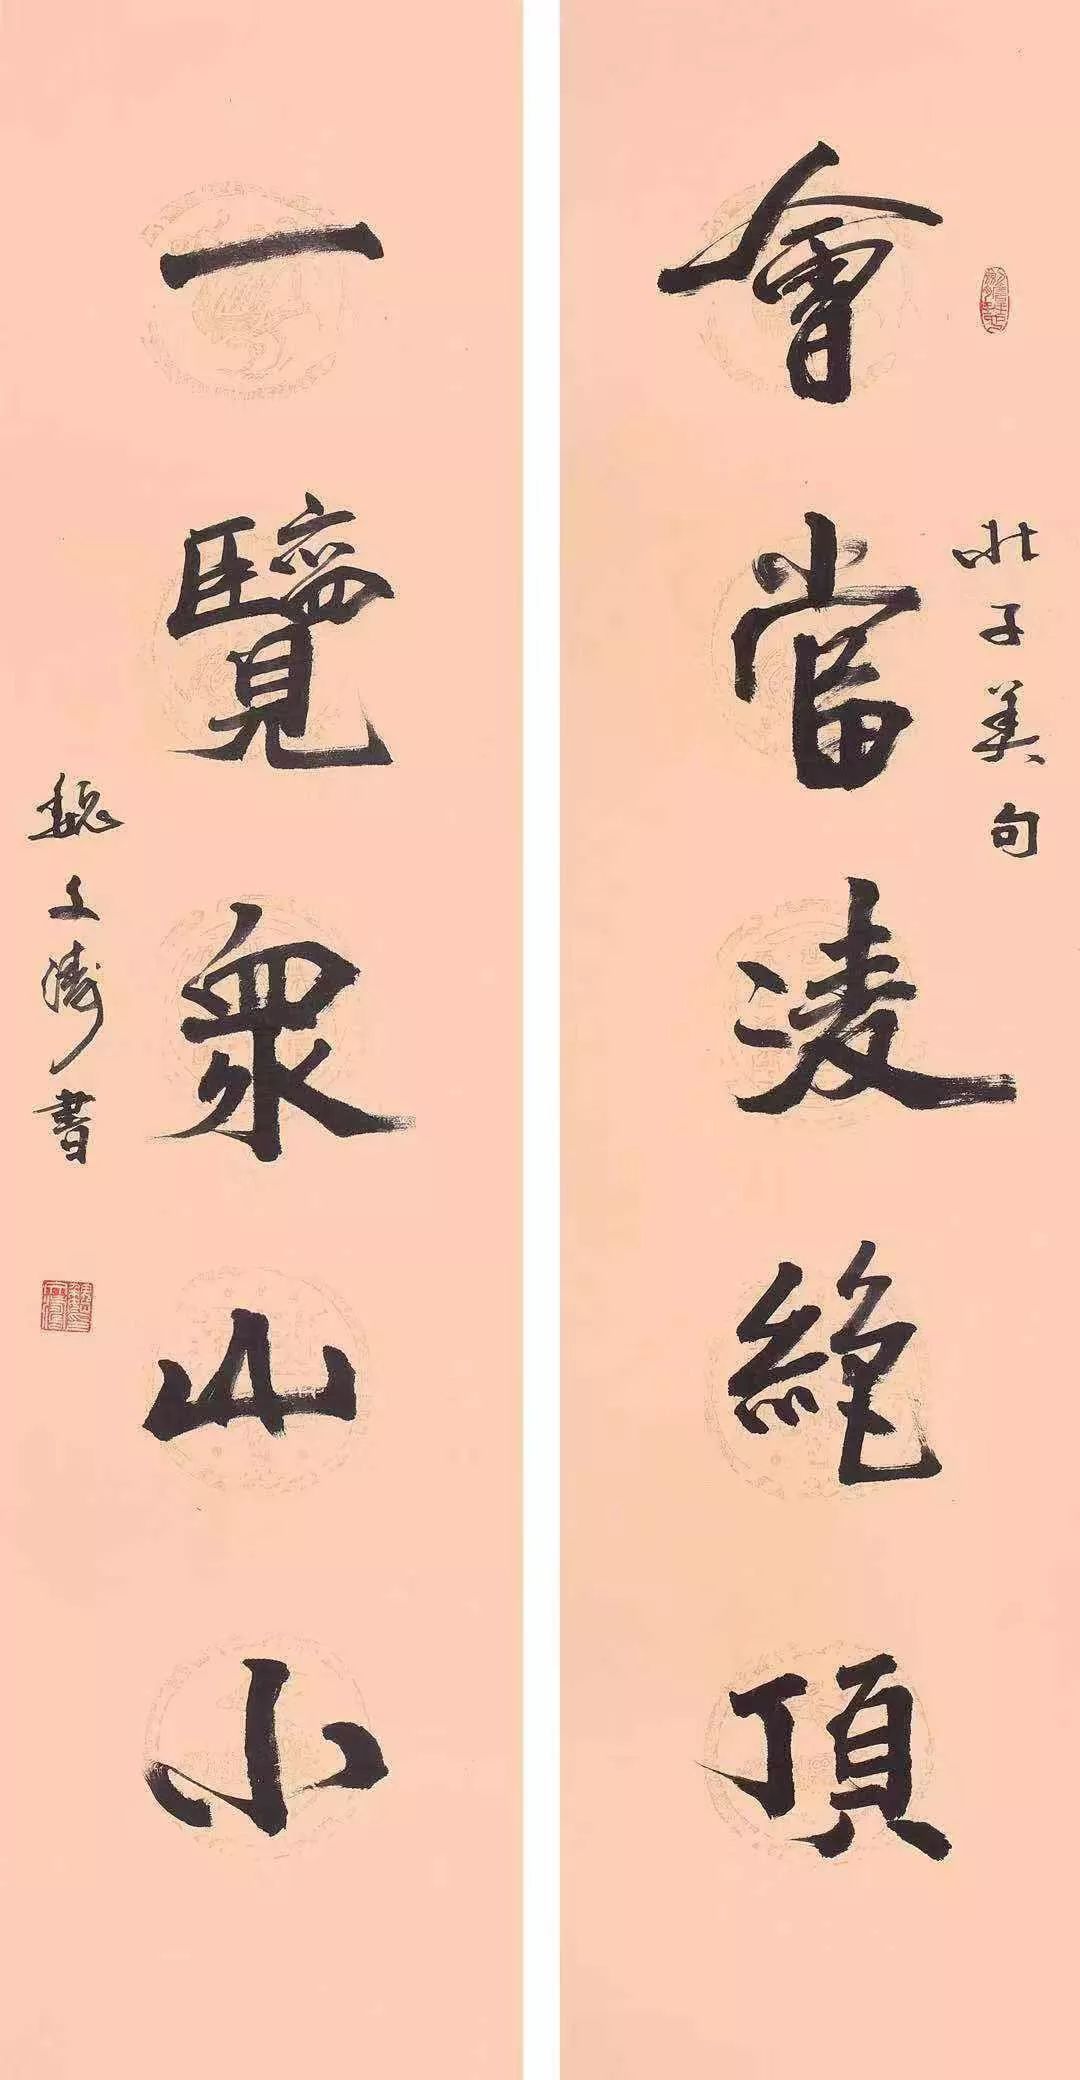 會當凌絕頂
杜子美句
一覽衆山小
魏文濤書